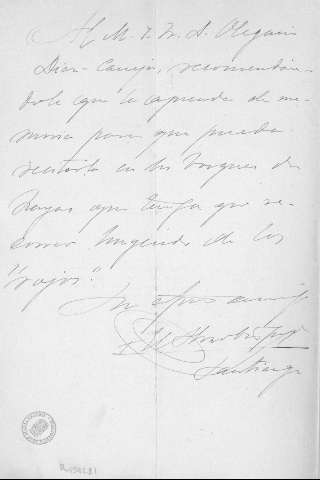 Al M. I. Sr. D. Olegario
Diaz-Caneja, recomendán-
dole que la aprenda de me-
moria para que pueda
recitarla en los bosques de
hayas que tenga que re-
correr huyendo de los
"rojos."
Su afmo. amigo
El Arzobispo
Santiago